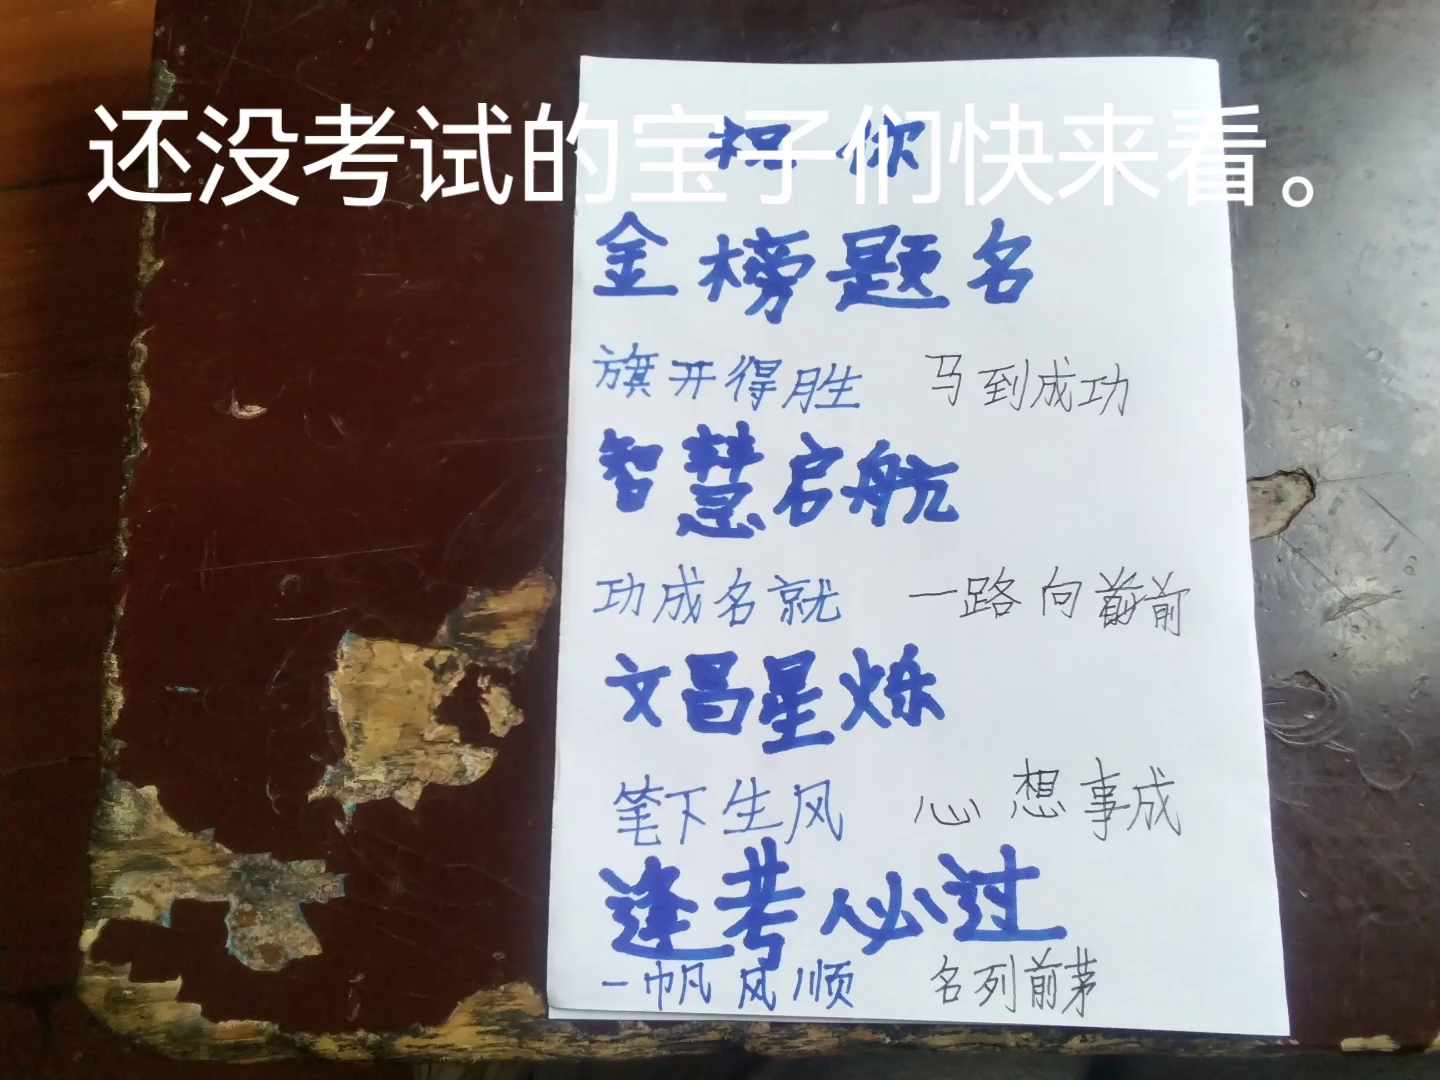 还没考试的宝子们快来看。
祝你
金榜题名
旗开得胜 马到成功
智慧启航
功成名就 一路向前
文昌星烁
笔下生风 心想事成
逢考必过
一帆风顺 名列前茅